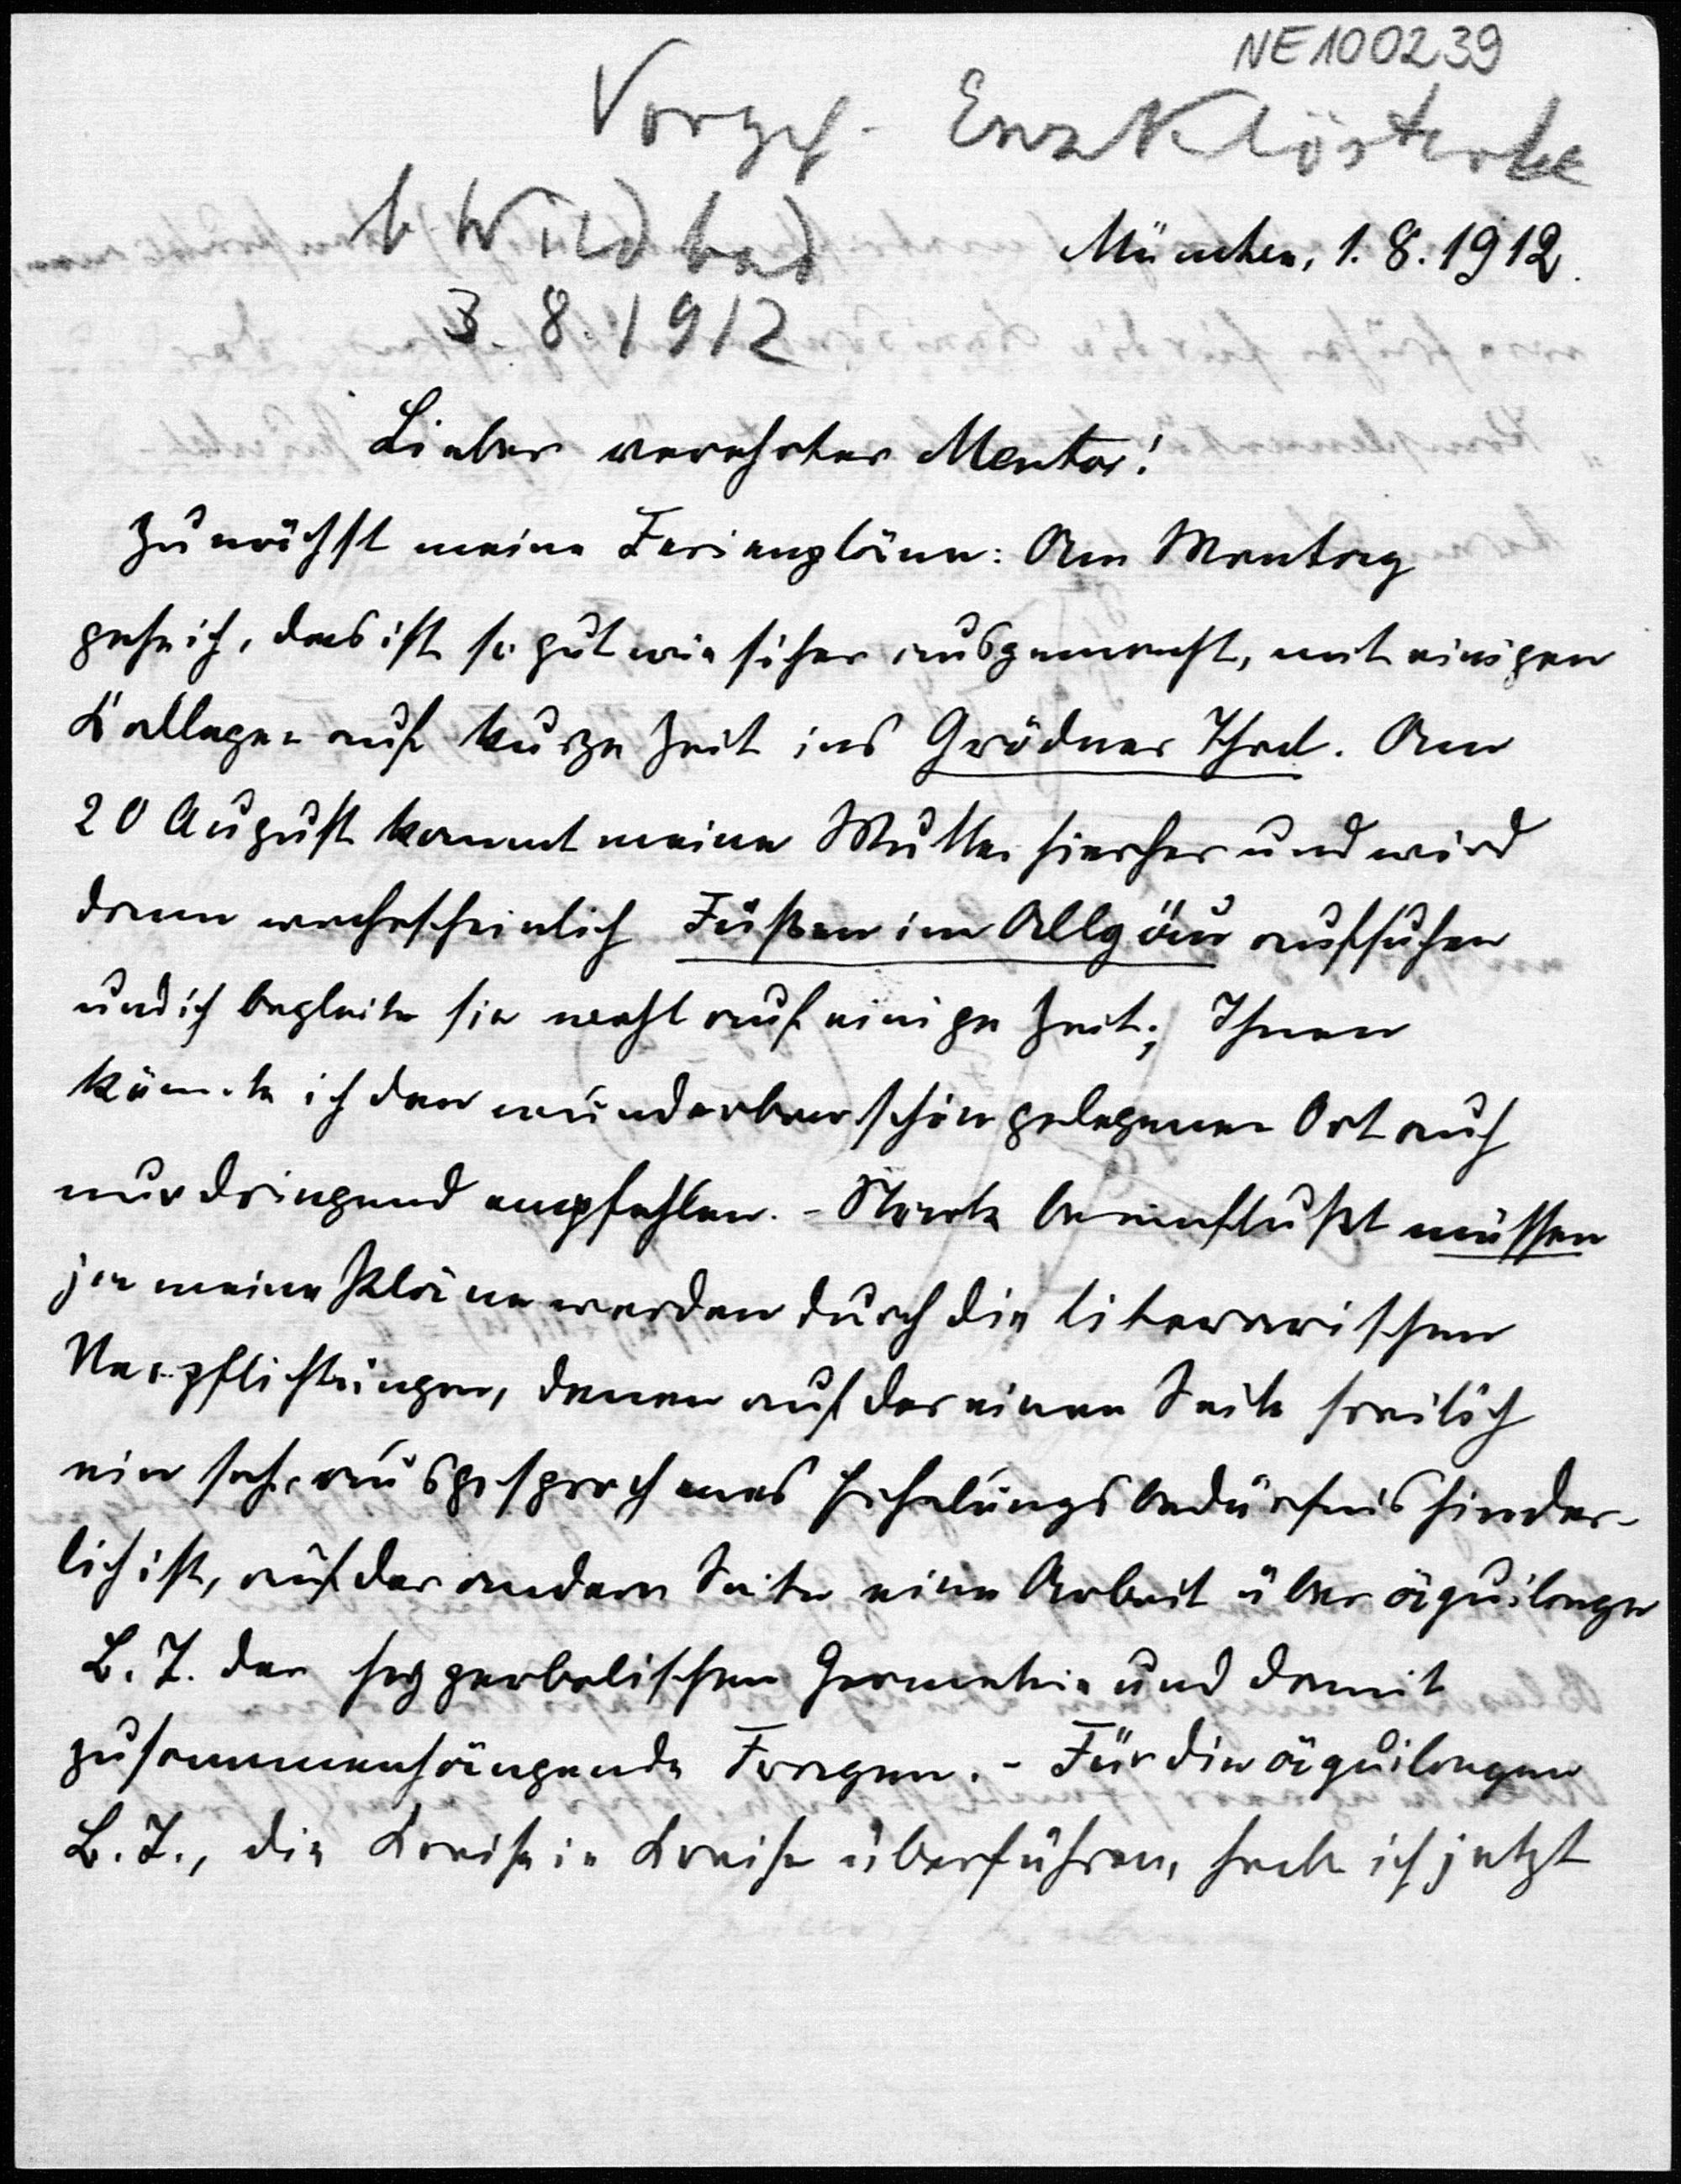 NE100239
Vorgef. Enzklösterle
b Wildbad
3. 8. 1912
München, 1. 8. 1912.
Lieber verehrter Mentor!
Zunächst meine Ferienpläne: Am Montag
gehe ich, das ist so gut wie sicher ausgemacht, mit einigen
Kollegen auf kurze Zeit ins Grödner Thal. Am
20 August kommt meine Mutter hierher und wird
dann wahrscheinlich Füßen im Allgäu aufsuchen
und ich begleite sie wohl auf einige Zeit; Ihnen
könnte ich den wunderbar schön gelegenen Ort auch
nur dringend empfehlen. – Stark beeinflußt müssen
ja meine Pläne werden durch die literarischen
Verpflichtungen, denen auf der einen Seite freilich
ein sehr ausgesprochenes Erholungsbedürfnis hinder-
lich ist, auf der andern Seite eine Arbeit über äquilonge
B. T. der hyperbolischen Geometrie und damit
zusammenhängende Fragen. – Für die äquilongen
B. T., die Kreise in Kreise überführen, habe ich jetzt